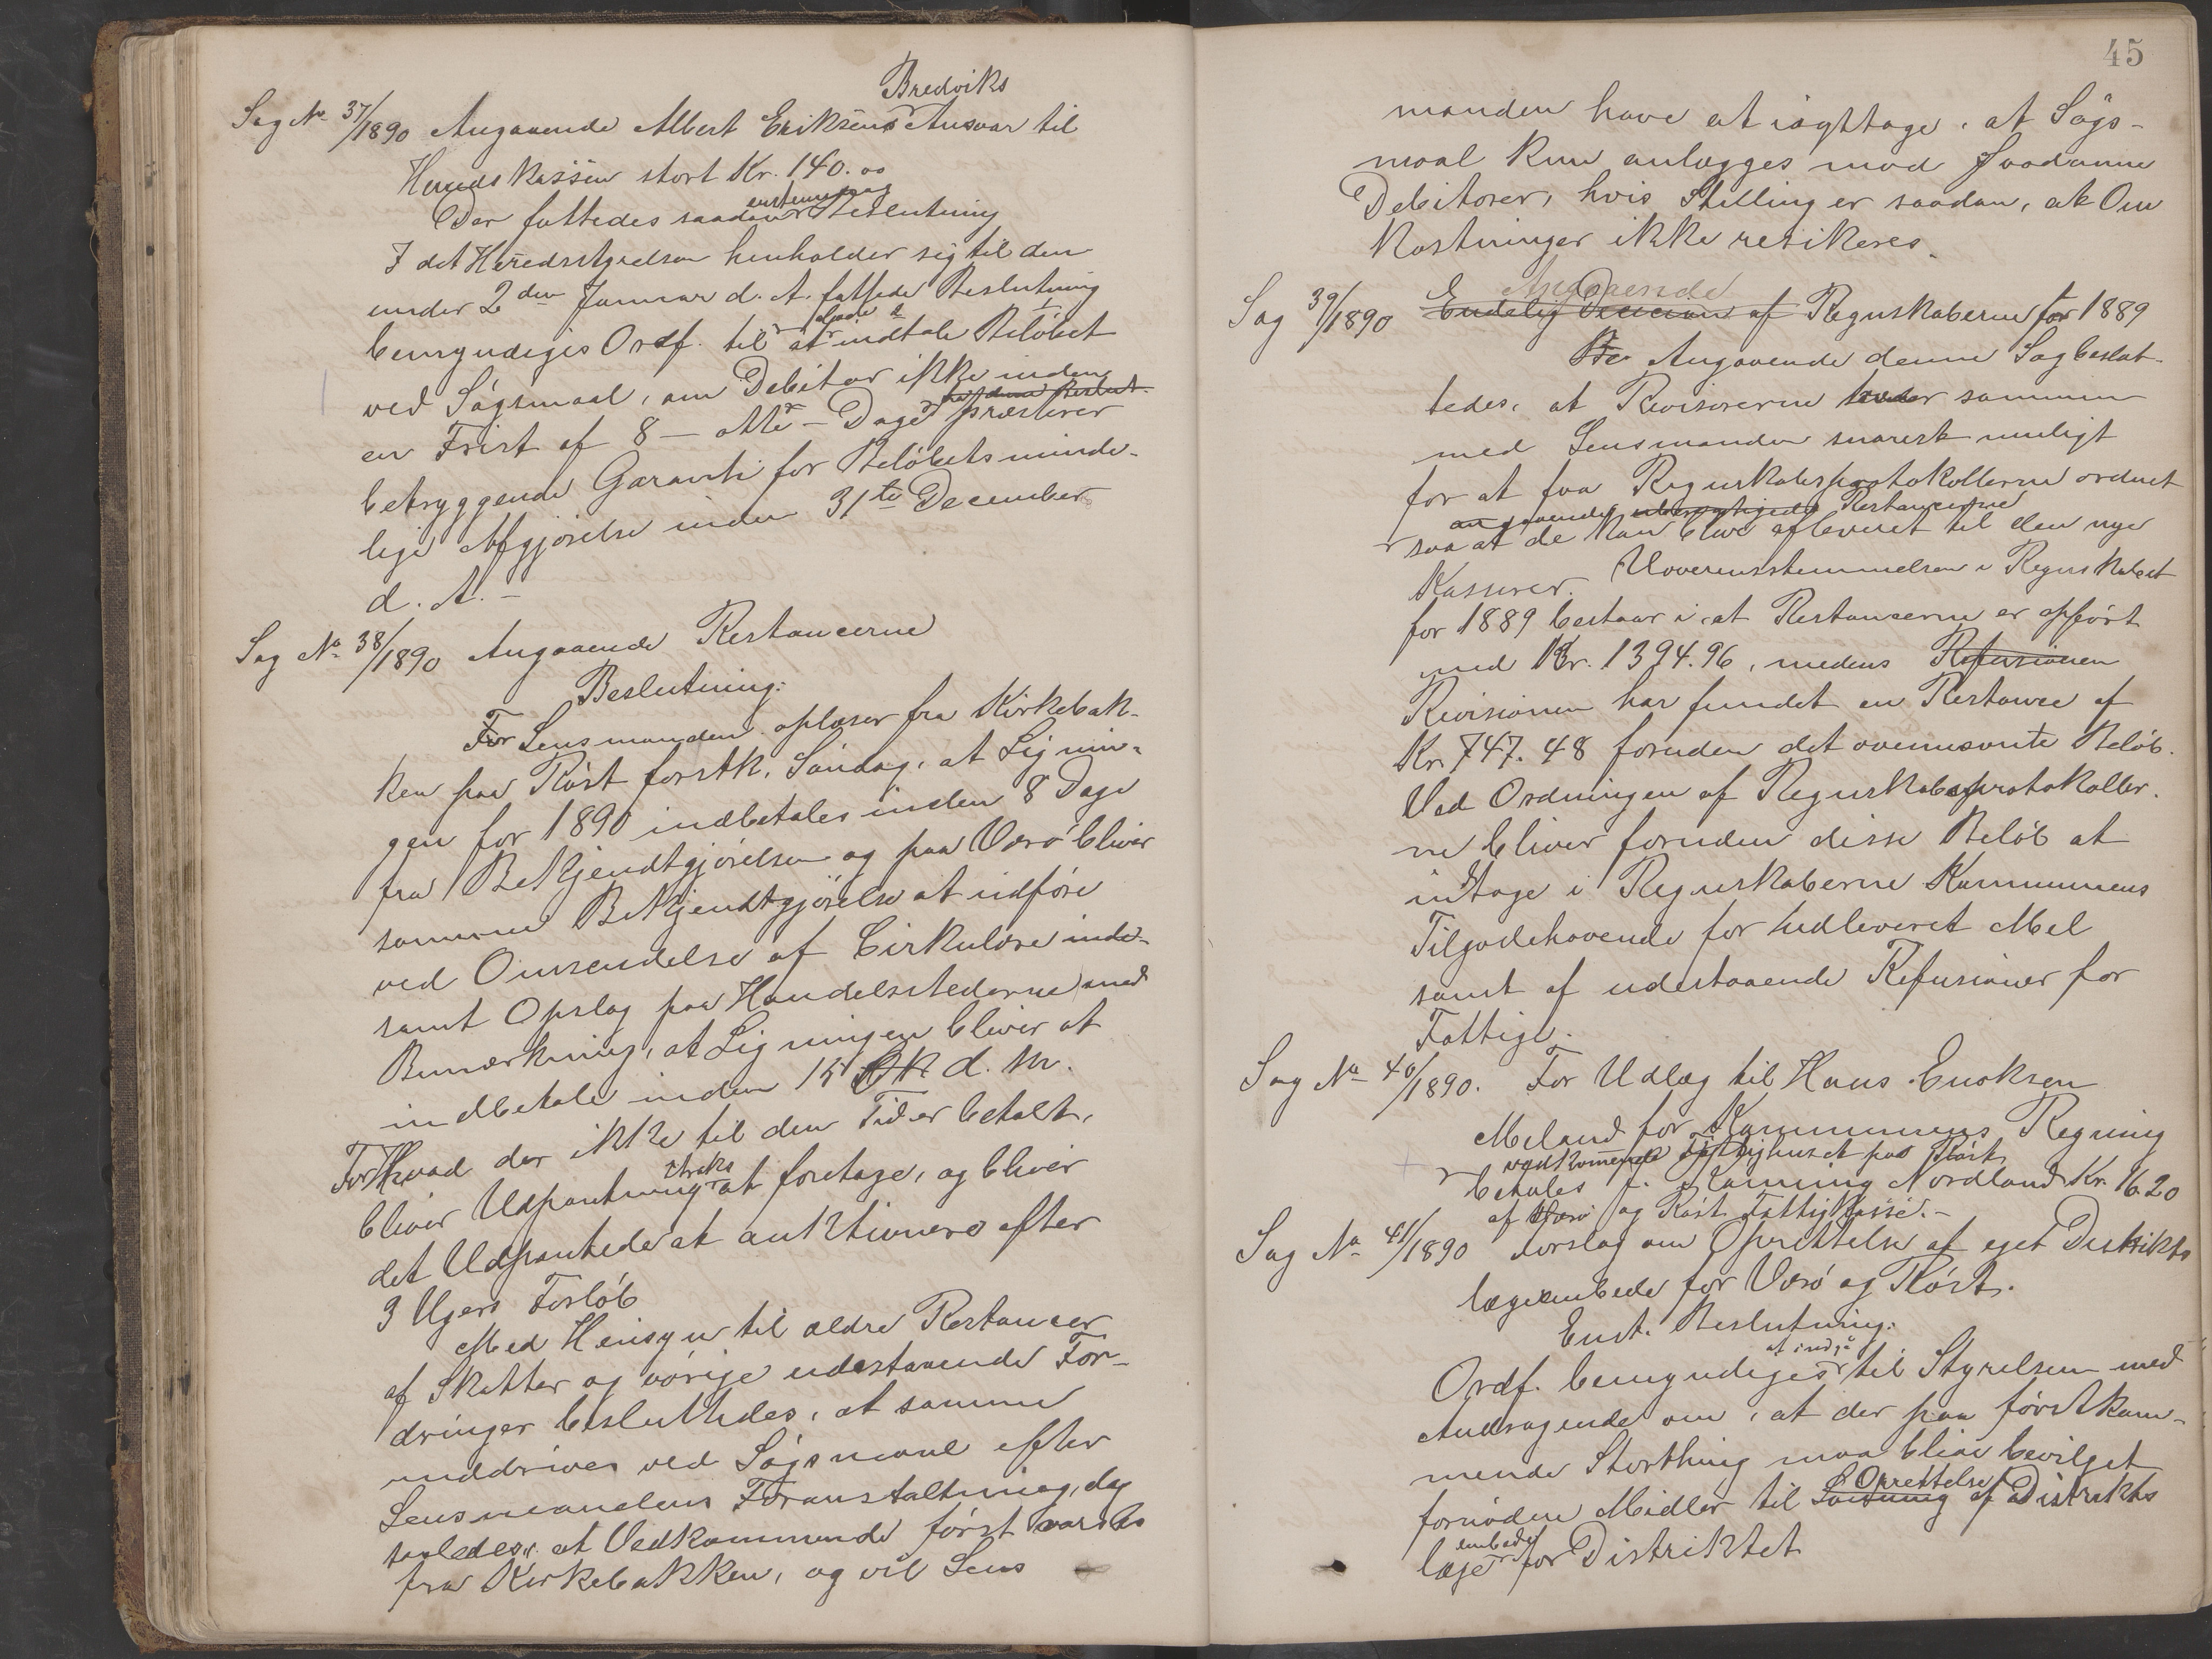 Bredviks
Sag No 37/1890 Angaaende Albert Eriksens Ansvar til
Herredskassen stort Kr. 140.00
enstemmig
Der fattedes saadan Beslutning
I det Heredsstyrelsen henholder sig til den
under 2den Januar d. A. fattede Beslutning
bemyndiges Ordf. til at indtale Beløbet
ved Søgsmaal, om Debitor ikke inden
en Frist af 8 – otte – Dage præsterer
betryggende Garanti for Beløbets minde-
lige Afgjørelse inden 31te December
d. A. –
Sag No 38/1890 Angaaende Restancerne
Beslutning:
For Lensmanden oplæser fra Kirkebak-
ken paa Røst førstk. Søndag, at Lignin-
gen for 1890 indbetales inden 8 Dage
fra Bekjendtgjørelsen og paa Værø bliver
samme Bekjendtgjørelse at udføre
ved Omsendelse af Cirkulære
samt Opslag paa Handelsstederne med
Bemærkning, at Ligningen bliver at
indbetale inden 15 d. M.
For Hvad der ikke til den Tid er betalt,
straks
bliver Udpantning at foretage, og bliver
det Udpantede at auktionere efter
3 Ugers Forløb
Med Hensyn til ældre Restancer
af Skatter og øvrige udestaaende For-
dringer besluttedes, at samme
inddrives ved Søgsmaal efter
Lensmandens Foranstaltning, dog
saaledes, at Vedkommende først varsles
fra Kirkebakken, og vil Lens
45
manden have at iagttage, at Søgs-
maal kun anlægges mod saadanne
Debitorer, hvis Stilling er saadan, at Om
kostninger ikke resikeres.
Angaaende
Sag 39/1890 Endelig Decision af Regnskaberne for 1889
Be Angaaende denne Sag beslut-
tedes, at Revisorerne træder sammen
med Lensmanden snarest muligt
for at faa Regnskabsprotokollerne ordnet
angaaende Restancerne
saa at de kan blive afleveret til den nye
Kasserer. Uoverensstemmelsen i Regnskabet
for 1889 bestaar i, at Restancerne er opført
med Kr. 1394.96, medens Refusionen
Revisionen har fundet en Restance af
Kr. 747.48 foruden det ovennævnte Beløb.
Ved Ordningen af Regnskabsprotokoller-
ne bliver foruden disse Beløb at
indtage i Regnskaberne Kommunens
Tilgodehavende for udleveret Mel
samt af udestaaende Refusioner for
Fattige.
Sag No 40/1890. For Udlæg til Hans Enoksen
Meland for Kommunens Regning
vedkommende Fattighuset paa Røst
betales f. Kanning Nordland Kr. 16.20
af Værø og Røst Fattigkasse. –
Sag No 41/1890 Forslag om Oprettelse af eget Distrikts
lægeembede for Værø og Røst.
Enst. Beslutning:
at indgå
Ordf. bemyndiges til Styrelsen med
Andragende om, at der paa førstkom-
mende Storthing maa blive bevilget
Oprettelse
fornødne Midler til Lønning af Distrikts
embede
læge for Distriktet